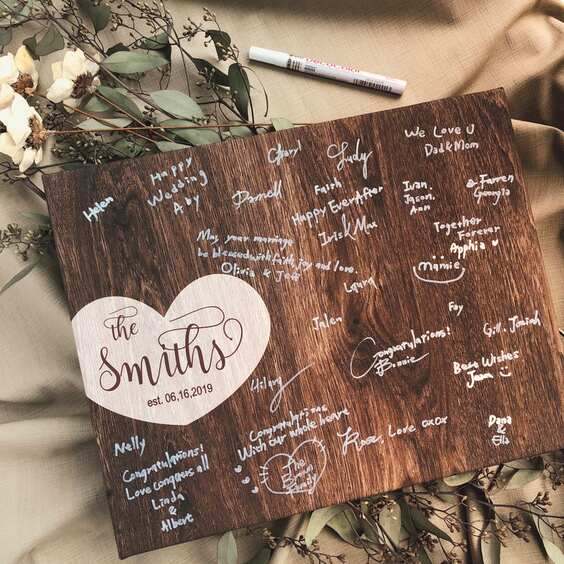 Helen
Happy
Wedding
Aby
Cheryl
Judy
We Love U
Dad&Mom
Darnell
Faith
Happy Ever After
Iris & Max
Ivan.
Jason.
Ann
& Farren
Georgia
Together
Forever
Apphia
mamie
May your marriage
be blessed with faith, joy and love.
Olivia & Jeff
Laura
Jalen
Foy
Gill. Josiah
Congratulations!
Bonnie
Best Wishes
Jasa
the
Smiths
est. 06,16,2019
Hilary
Nelly
Congratulations!
Love conquers all
Linda
&
Albert
Congratulations
With our whole heart
The
Family
Rose, Love oxox
Dana
&
Ella